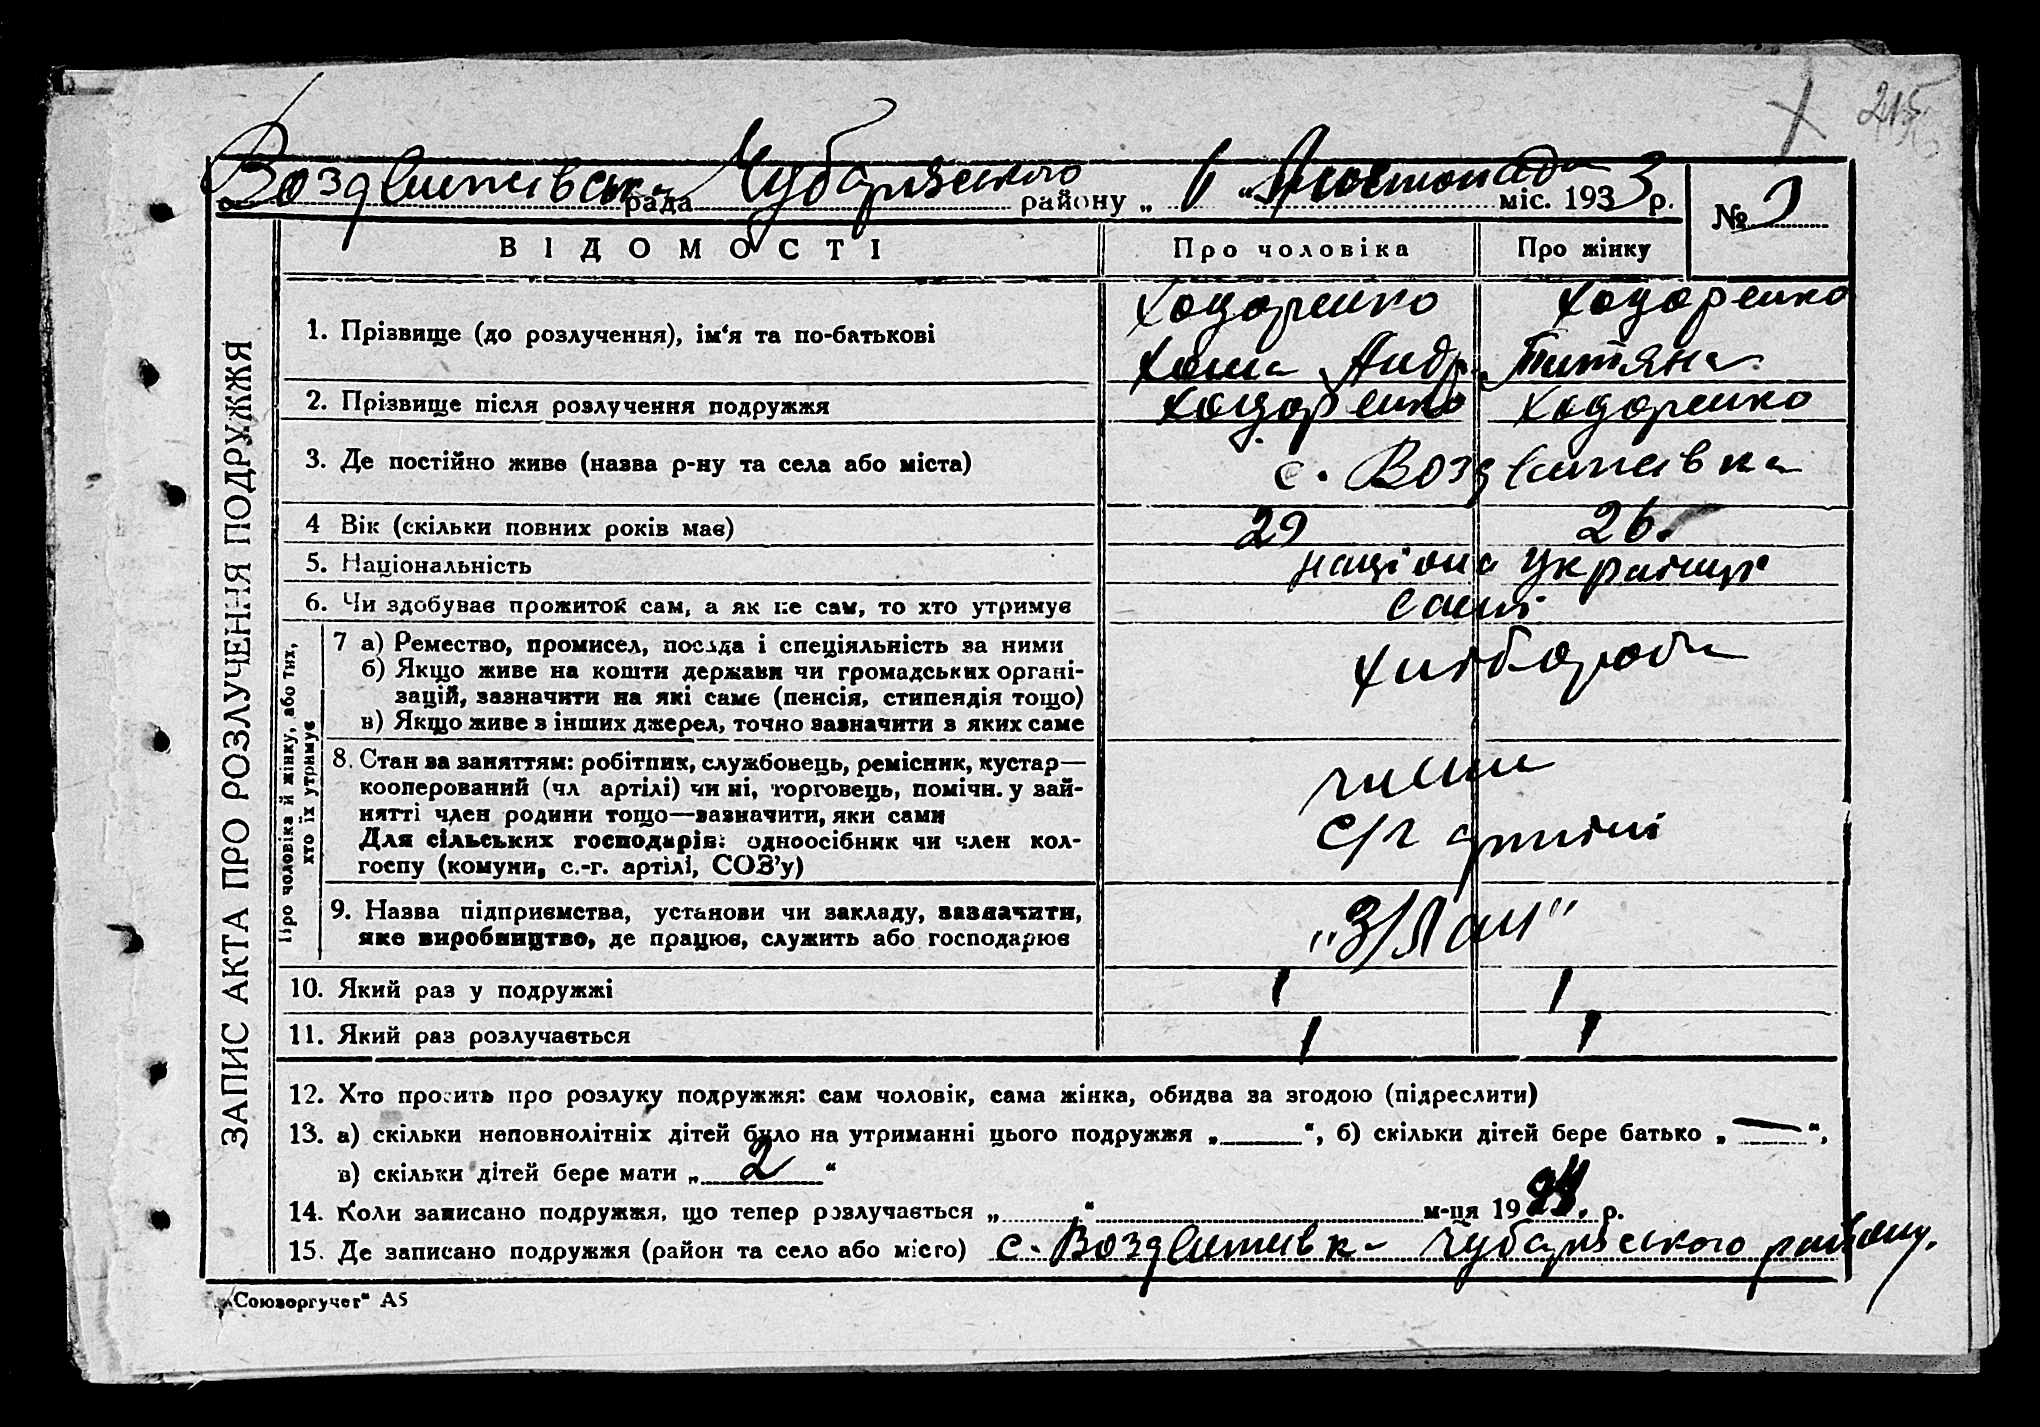 215
Воздвиживська рада Чубарівського району „ 1 “ Листопада міс. 1933 р.
№ 2
ЗАПИС АКТА ПРО РОЗЛУЧЕННЯ ПОДРУЖЖЯ
ВІДОМОСТІ Про чоловіка Про жінку
Ходоренко Ходоренко
1. Прізвище (до розлучення), ім‘я та по-батькові
Хома Андр. Титяна
2. Прізвище після розлучення подружжя Ходоренко Ходоренко
3. Де постійно живе (назва р-ну та села або міста) с. Воздвиживка
4 Вік (скільки повних років має) 29 26.
5. Національність націона українці
6. Чи здобував прожиток сам, а як не сам, то хто утримує самі
Про чоловіка й жінку, або тих,
хто їх утримує
7 а) Ремество, промисел, посада і спеціяльність за ними
б) Якщо живе на кошти держави чи громадських органі-
зацій, зазначити на які саме (пенсія, стипендія тощо)
в) Якщо живе з інших джерел, точно зазначити з яких саме
хлібороби
8. Стан за заняттям: робітник, службовець, ремісник, кустар—
кооперований (чл артілі) чи ні, торговець, помічн. у зай-
нятті член родини тощо—зазначити, яки сами
Для сільських господарів: одноосібник чи член кол-
госпу (комуни, с.-г. артілі, СОЗ’у)
члени
с/г артілі
9. Назва підприємства, установи чи закладу, зазначити,
яке виробництво, де працює, служить або господарює
10. Який раз у подружжі 1 1
11. Який раз розлучається 1 1
12. Хто просить про розлуку подружжя: сам чоловік, сама жінка, обидва за згодою (підреслити)
13. а) скільки неповнолітніх дітей було на утриманні цього подружжя „ “, б) скільки дітей бере батько „ — “,
в) скільки дітей бере мати „ 2 “
14. Коли записано подружжя, що тепер розлучається „ “ м-ця 1924. р.
15. Де записано подружжя (район та село або місто) с. Воздвиживка Чубарівського району.
„Союзоргучет“ А5